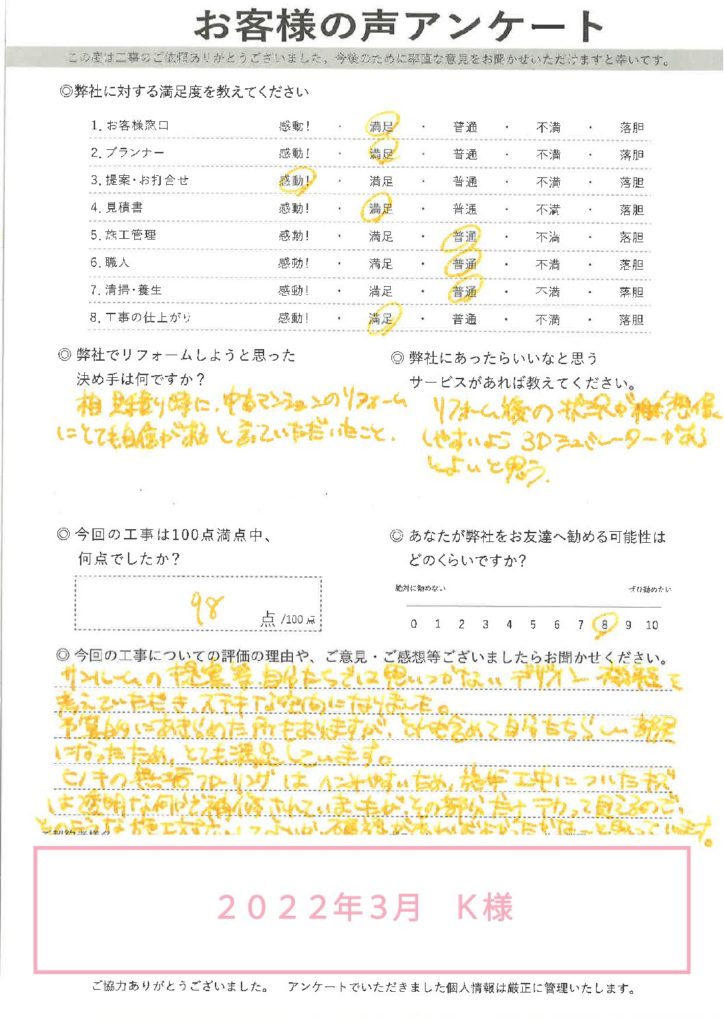 お客様の声アンケート
この度は工事のご依頼ありがとうございました、今後のために率直な意見をお聞かせいただけますと幸いです。
◎弊社に対する満足度を教えてください
1. お客様窓口 感動! ・ 満足 ・ 普通 ・ 不満 ・ 落胆
2. プランナー 感動! ・ 満足 ・ 普通 ・ 不満 ・ 落胆
3. 提案・お打合せ 感動! ・ 満足 ・ 普通 ・ 不満 ・ 落胆
4. 見積書 感動! ・ 満足 ・ 普通 ・ 不満 ・ 落胆
5. 施工管理 感動! ・ 満足 ・ 普通 ・ 不満 ・ 落胆
6. 職人 感動! ・ 満足 ・ 普通 ・ 不満 ・ 落胆
7. 清掃・養生 感動! ・ 満足 ・ 普通 ・ 不満 ・ 落胆
8. 工事の仕上がり 感動! ・ 満足 ・ 普通 ・ 不満 ・ 落胆
◎弊社でリフォームしようと思った
決め手は何ですか?
相見積り時に、中古マンションのリフォーム
にとても自信がある と言っていただいたこと。
◎弊社にあったらいいなと思う
サービスがあれば教えてください。
リフォーム後の状況が想像
しやすいよう 3Dシュミレーターがある
とよいと思う。
◎今回の工事は100点満点中、
何点でしたか?
98 点 /100点
◎あなたが弊社をお友達へ勧める可能性は
どのくらいですか?
絶対に勧めない ぜひ勧めたい
0 1 2 3 4 5 6 7 8 9 10
◎今回の工事についての評価の理由や、ご意見・ご感想等ございましたらお聞かせください。
サンルームの提案等自分たちでは思いつかないデザイン
考えていただき、ステキな空間になりました。
予算的にあきらめた所もありますが、それも含めて自分たちらしい部屋
になったため、とても満足しています。
ヒノキの無垢フローリングは ヘコみやすいため、施工中についたキズ
は透明な何かで補修されていましたが その部分だけ テカって見えるので、
そのような施工対応 思っています。
2022年3月 K様
ご協力ありがとうございました。 アンケートでいただきました個人情報は厳正に管理いたします。